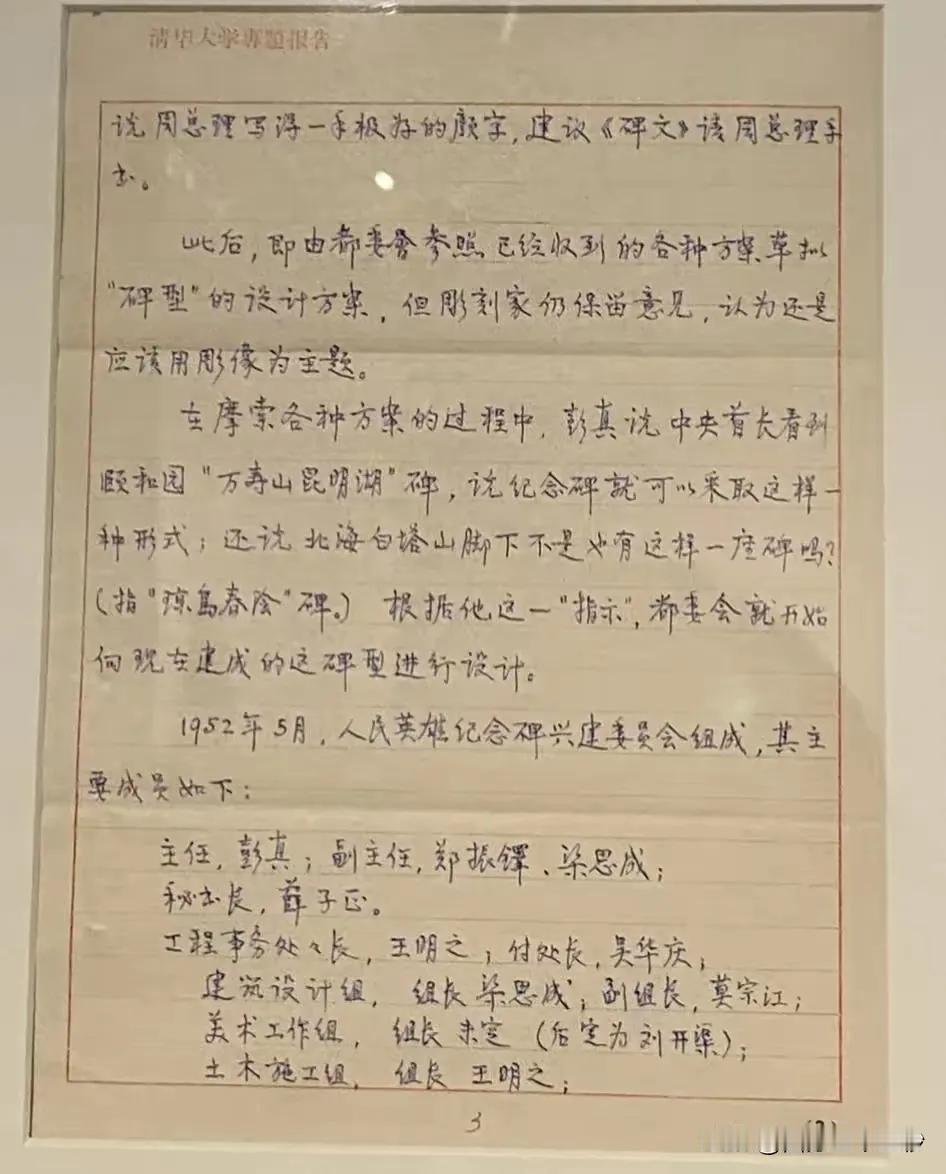 清华大学专题报告
说周总理写得一手极好的颜字，建议《碑文》请周总理手
书。
此后，即由都委會参照已经收到的各种方案草拟
“碑型”的设计方案，但彫刻家仍保留意见，认为还是
应该用彫像为主题。
在摩索各种方案的过程中，彭真说中央首长看到
颐和园“万寿山昆明湖”碑，说纪念碑就可以采取这样一
种形式；还说北海白塔山脚下不是也有这样一座碑吗？
（指“琼岛春阴”碑。）根据他这一“指示”，都委会就开始
向现在建成的这碑型进行设计。
1952年5月，人民英雄纪念碑兴建委员会组成，其主
要成员如下：
主任，彭真；副主任，郑振铎、梁思成；
秘书长，薛子正。
工程事务处々长，王明之；付处长，吴华庆；
建筑设计组，组长梁思成；副组长，莫宗江；
美术工作组，组长未定（后定为刘开渠）；
土木施工组，组长王明之；
3